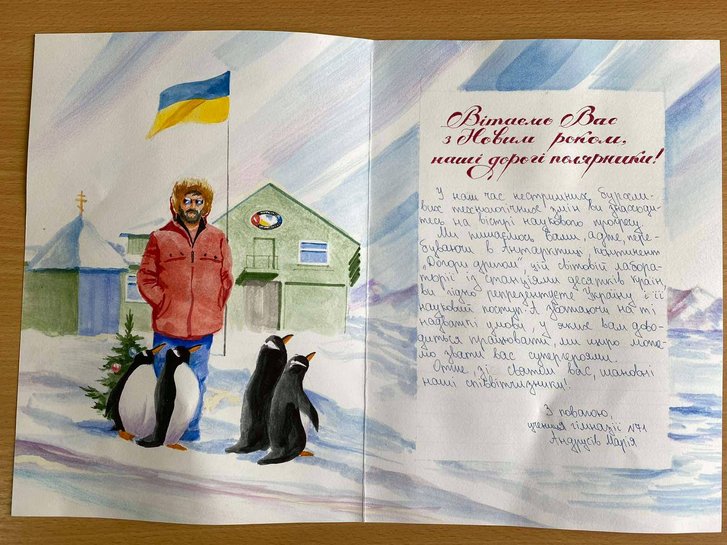 Вітаємо Вас
з Новим роком,
наші дорогі полярники!
У наш час нестримних бурхли-
вих технологічних змін ви знаходи-
тесь на вістрі наукового прогресу.
Ми пишаємось Вами, адже, пере-
буваючи в Антарктиці, континенті
"Догори дригом", цій світовій лабора-
торії із станціями десятків країн,
ви гідно репрезентуєте Україну і її
науковий поступ. А зважаючи на ті
надважкі умови, у яких вам дово-
диться працювати, ми щиро може-
мо звати вас супергероями.
Отже, зі святом вас, шановні
наші співвітчизники!
З повагою,
учениця гімназії №71
Андрусів Марія